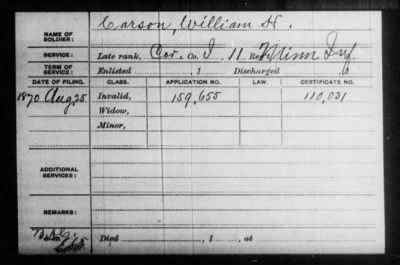 NAME OF SOLDIER: Carson, William H.
SERVICE: Late rank, Cor. Co. I, 11 Reg't Minn Inf.
TERM OF SERVICE: Enlisted , 1 Discharged , 1
DATE OF FILING. CLASS. APPLICATION NO. LAW. CERTIFICATE NO.
1870 Aug 25 Invalid, 159,655 110,031
Widow,
Minor,
ADDITIONAL SERVICES:
REMARKS:
Died , 1 , at